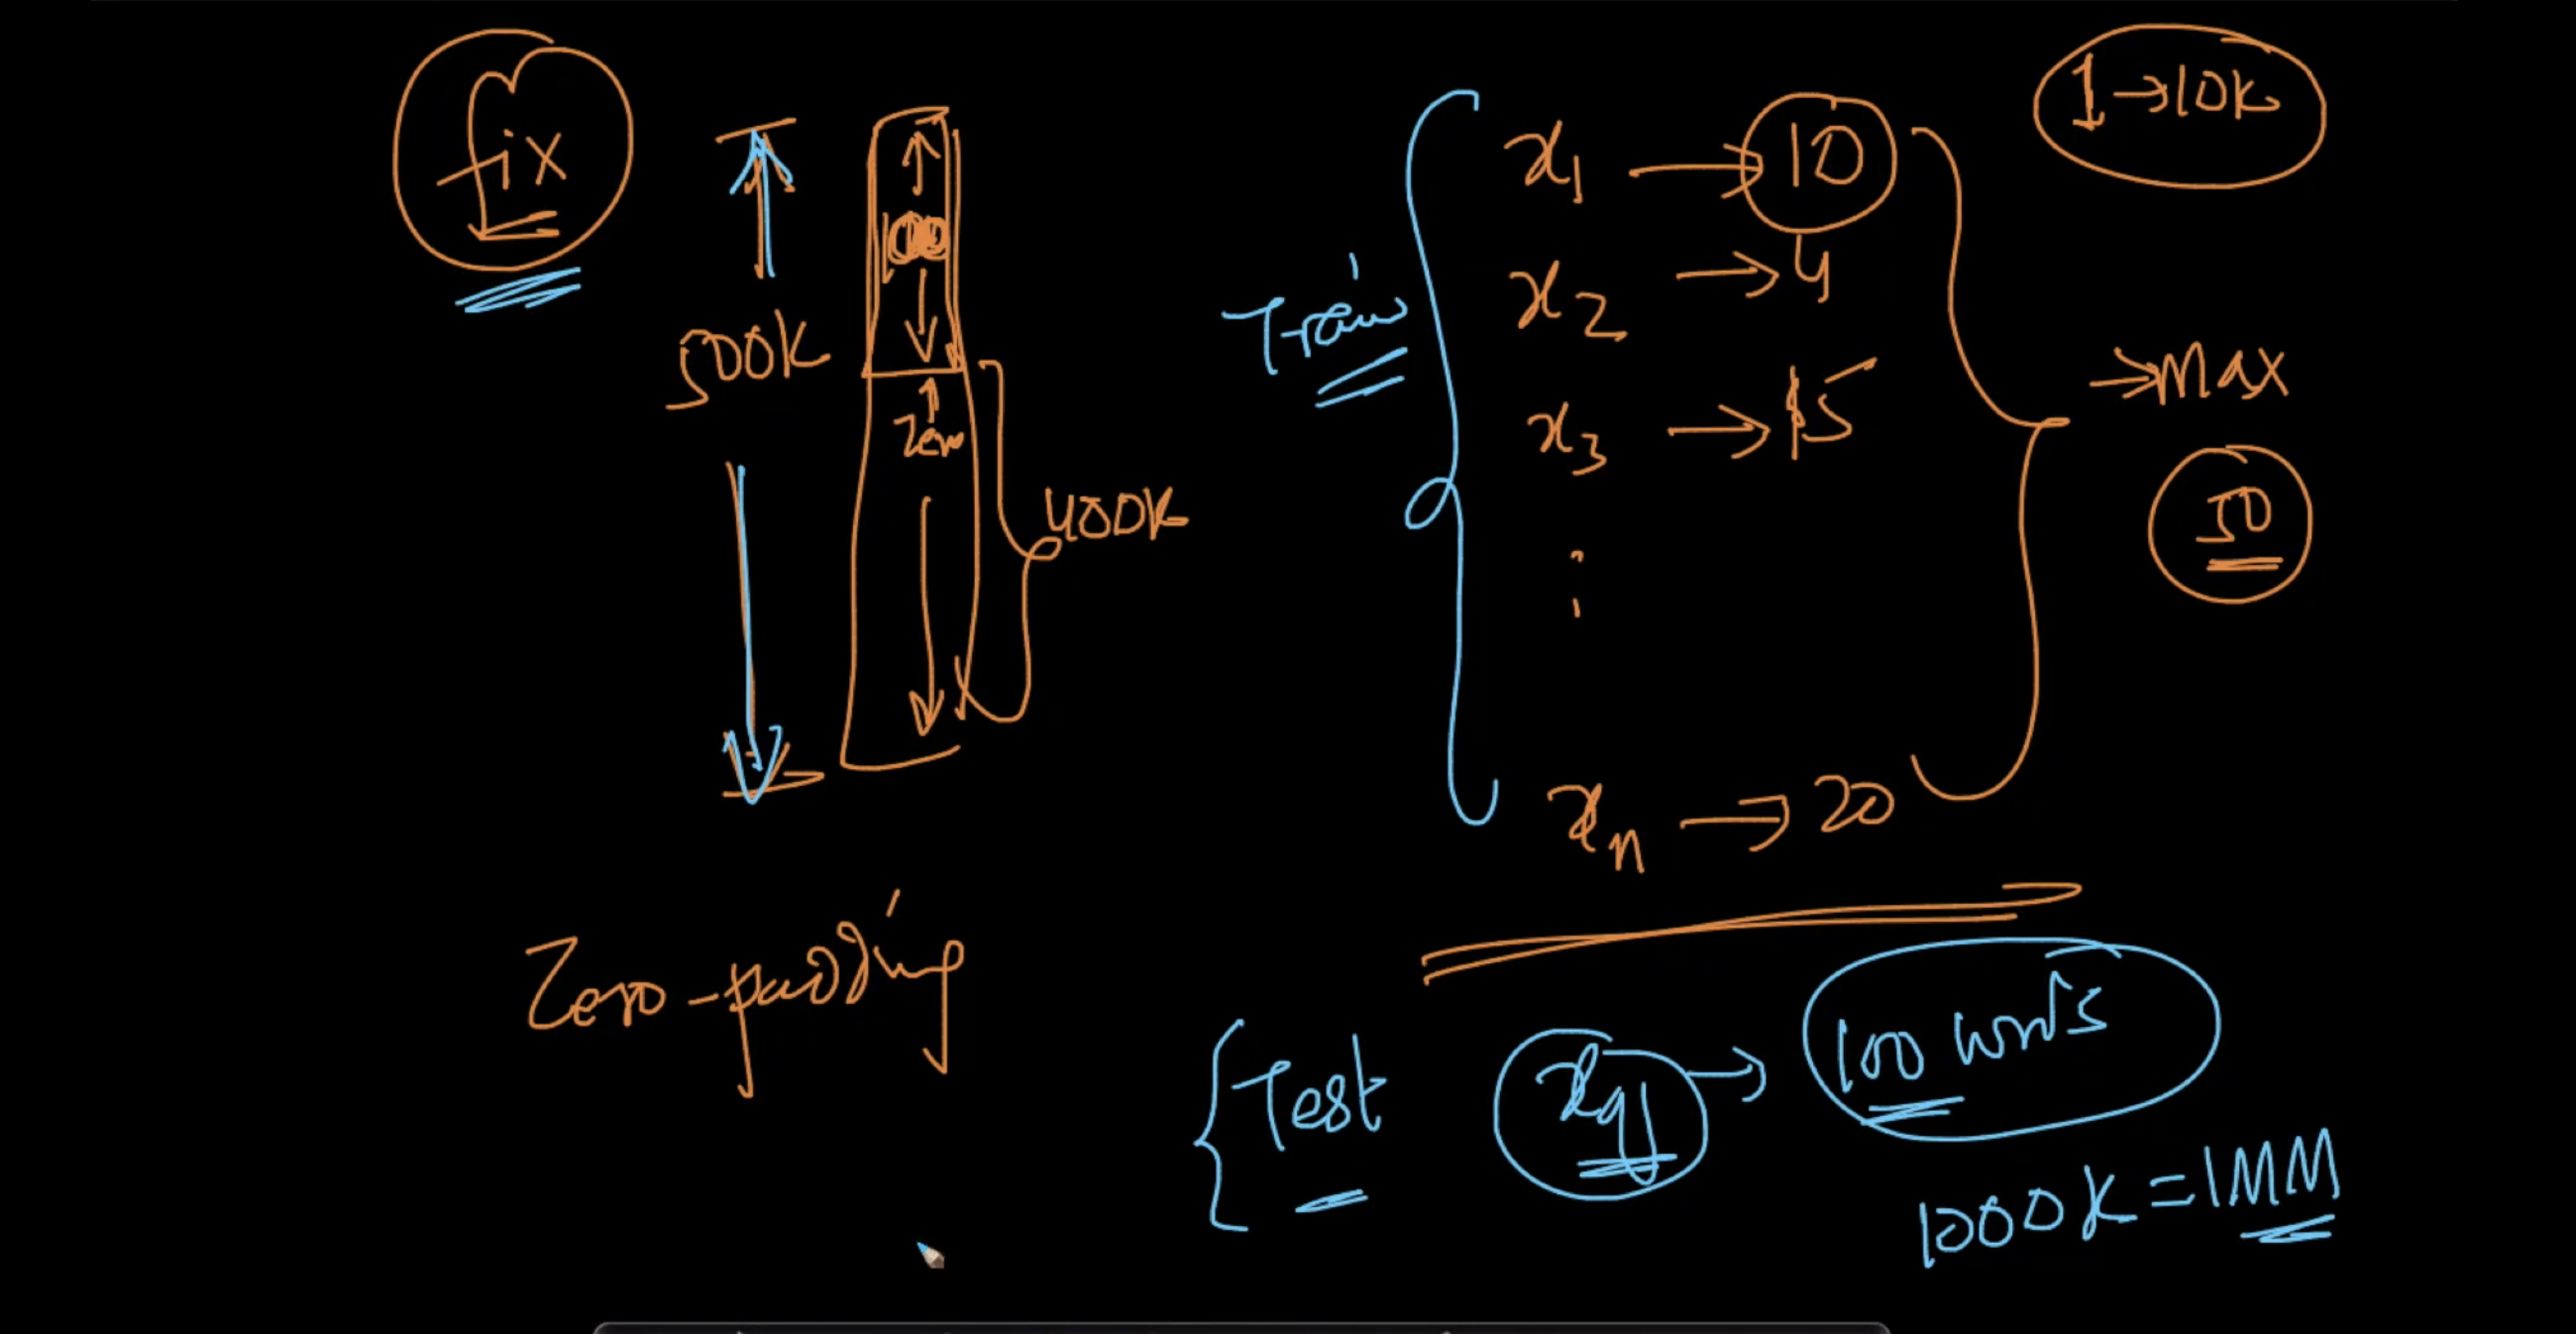 fix
500K
Zero
400K
Zero-padding
Train
x1 → 10
x2 → 4
x3 → 15
⋮
xn → 20
1 → 10k
→ Max
50
Test xq → 100 words
1000K = 1MM